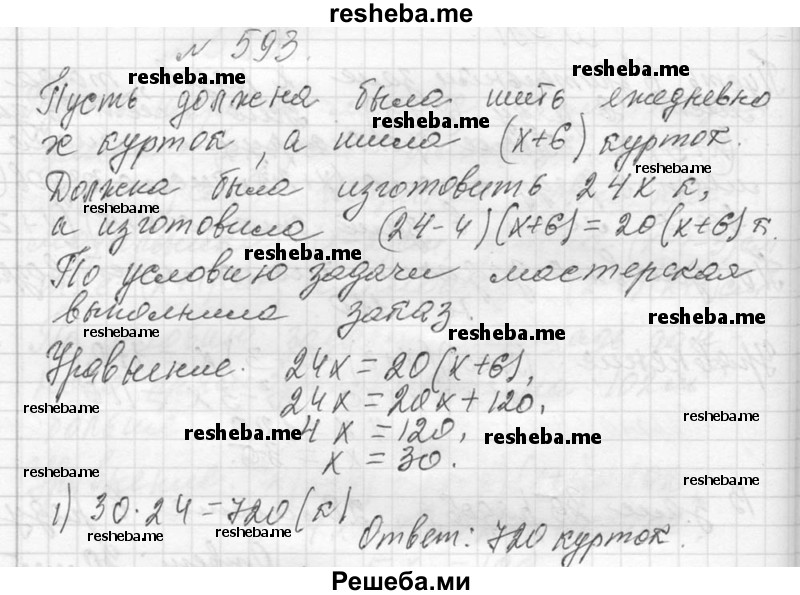 resheba.me
№ 593.
resheba.me resheba.me
Пусть должна была шить ежедневно
resheba.me
х курток, а шила (х+6) курток.
resheba.me
Должна была изготовить 24х к,
resheba.me
а изготовила (24-4)(х+6)=20(х+6) к.
resheba.me
По условию задачи мастерская
выполнила заказ.
resheba.me resheba.me resheba.me
Уравнение. 24х=20(х+6),
24х=20х+120,
resheba.me resheba.me
4х=120,
resheba.me resheba.me
х=30.
resheba.me resheba.me
1) 30·24=720(к)
resheba.me resheba.me
Ответ: 720 курток.
Решеба.ми